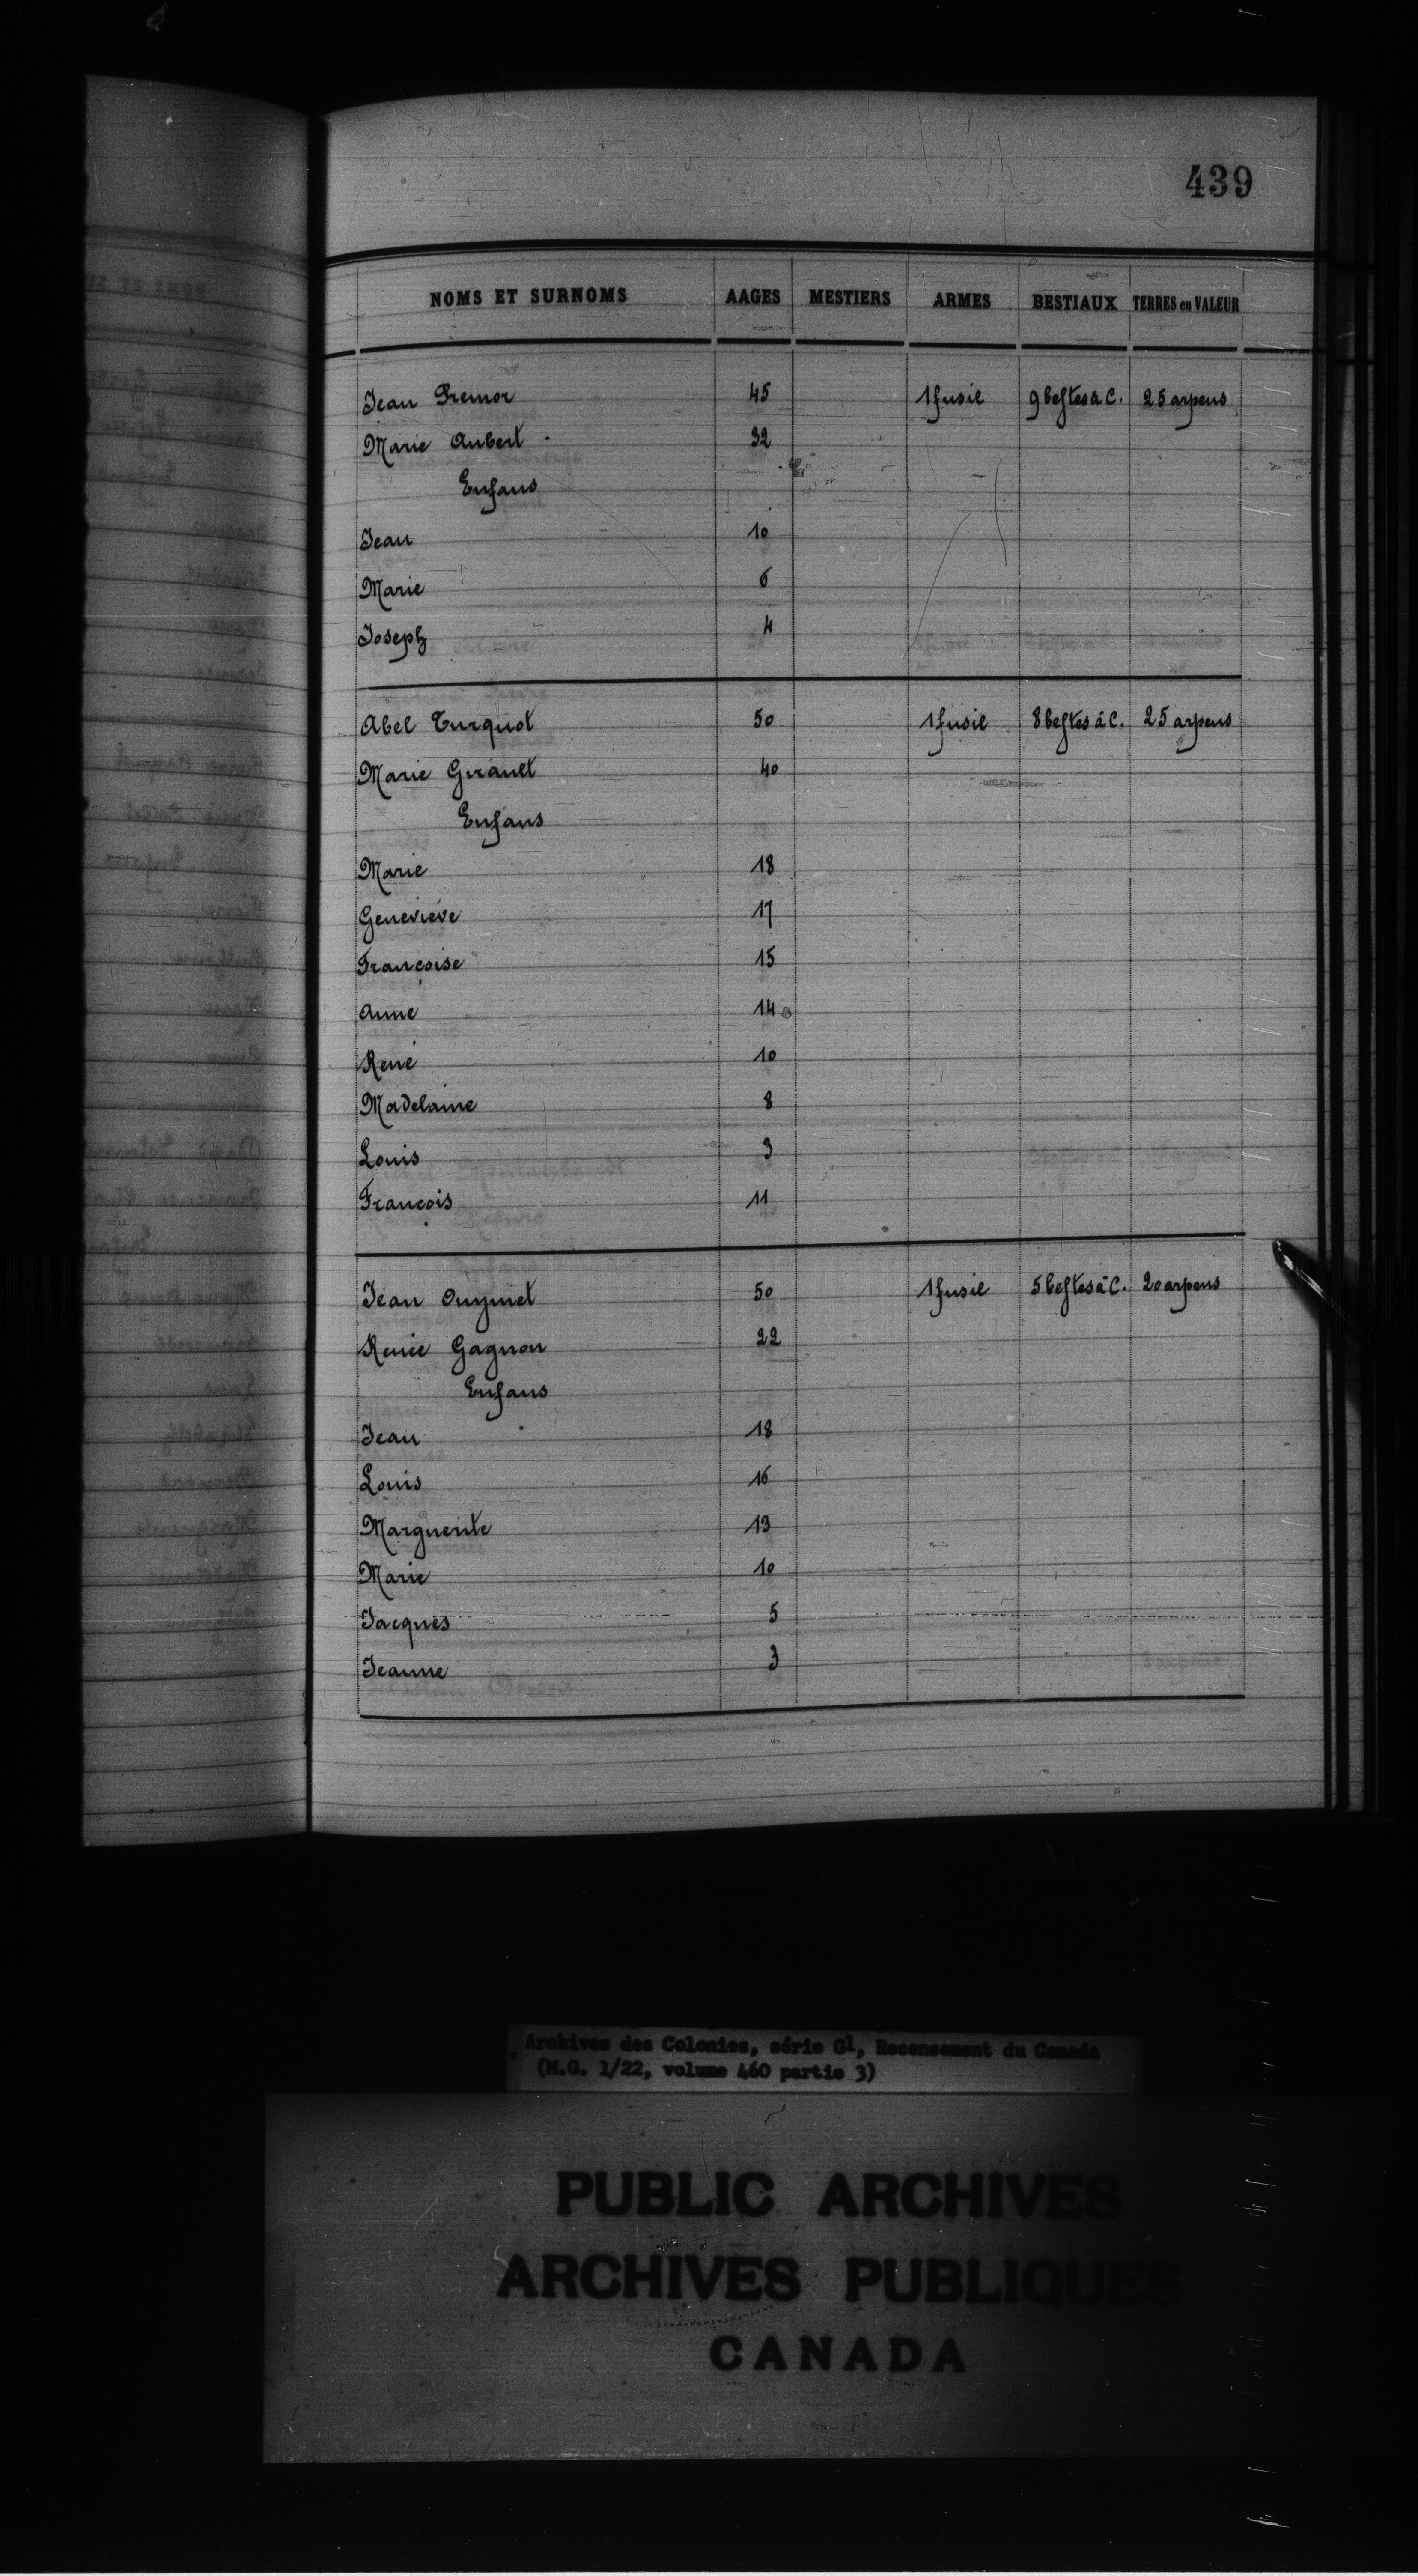 439
NOMS ET SURNOMS AAGES MESTIERS ARMES BESTIAUX TERRES en VALEUR
Jean Premor 45 1 fusil 9 bestes à C. 25 arpens
Marie Aubert 32
Enfans
Jean 10
Marie 6
Joseph 4
Abel Turquot 50 1 fusil 8 bestes à C. 25 arpens
Marie Girault 40
Enfans
Marie 18
Geneviève 17
Françoise 15
Anne 14
René 10
Madelaine 8
Louis 3
François 11
Jean Ouymet 50 1 fusil 5 bestes à C. 20 arpens
Renée Gagnon 22
Enfans
Jean 18
Louis 16
Marguerite 13
Marie 10
Jacques 5
Jeanne 3
Archives des Colonies, série G1, Recensement du Canada
(M.G. 1/22, volume 460 partie 3)
PUBLIC ARCHIVES
ARCHIVES PUBLIQUES
CANADA